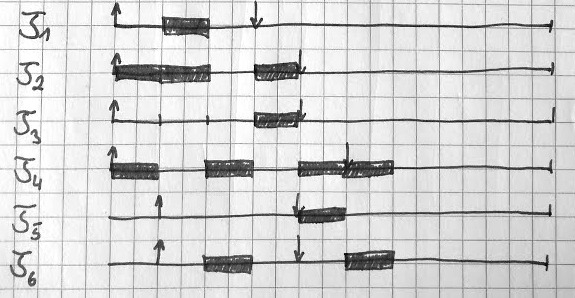 J₁
J₂
J₃
J₄
J₅
J₆